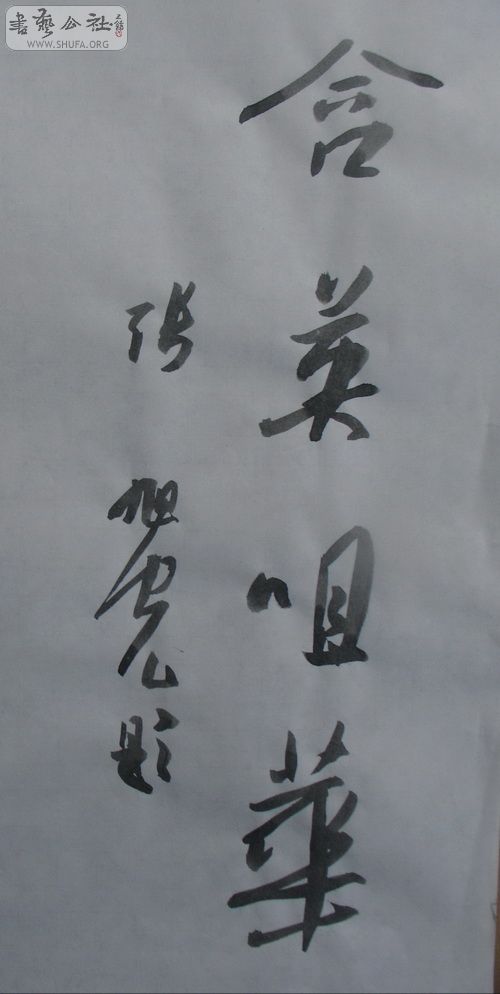 書藝公社
WWW.SHUFA.ORG
含英咀華
张旭光题